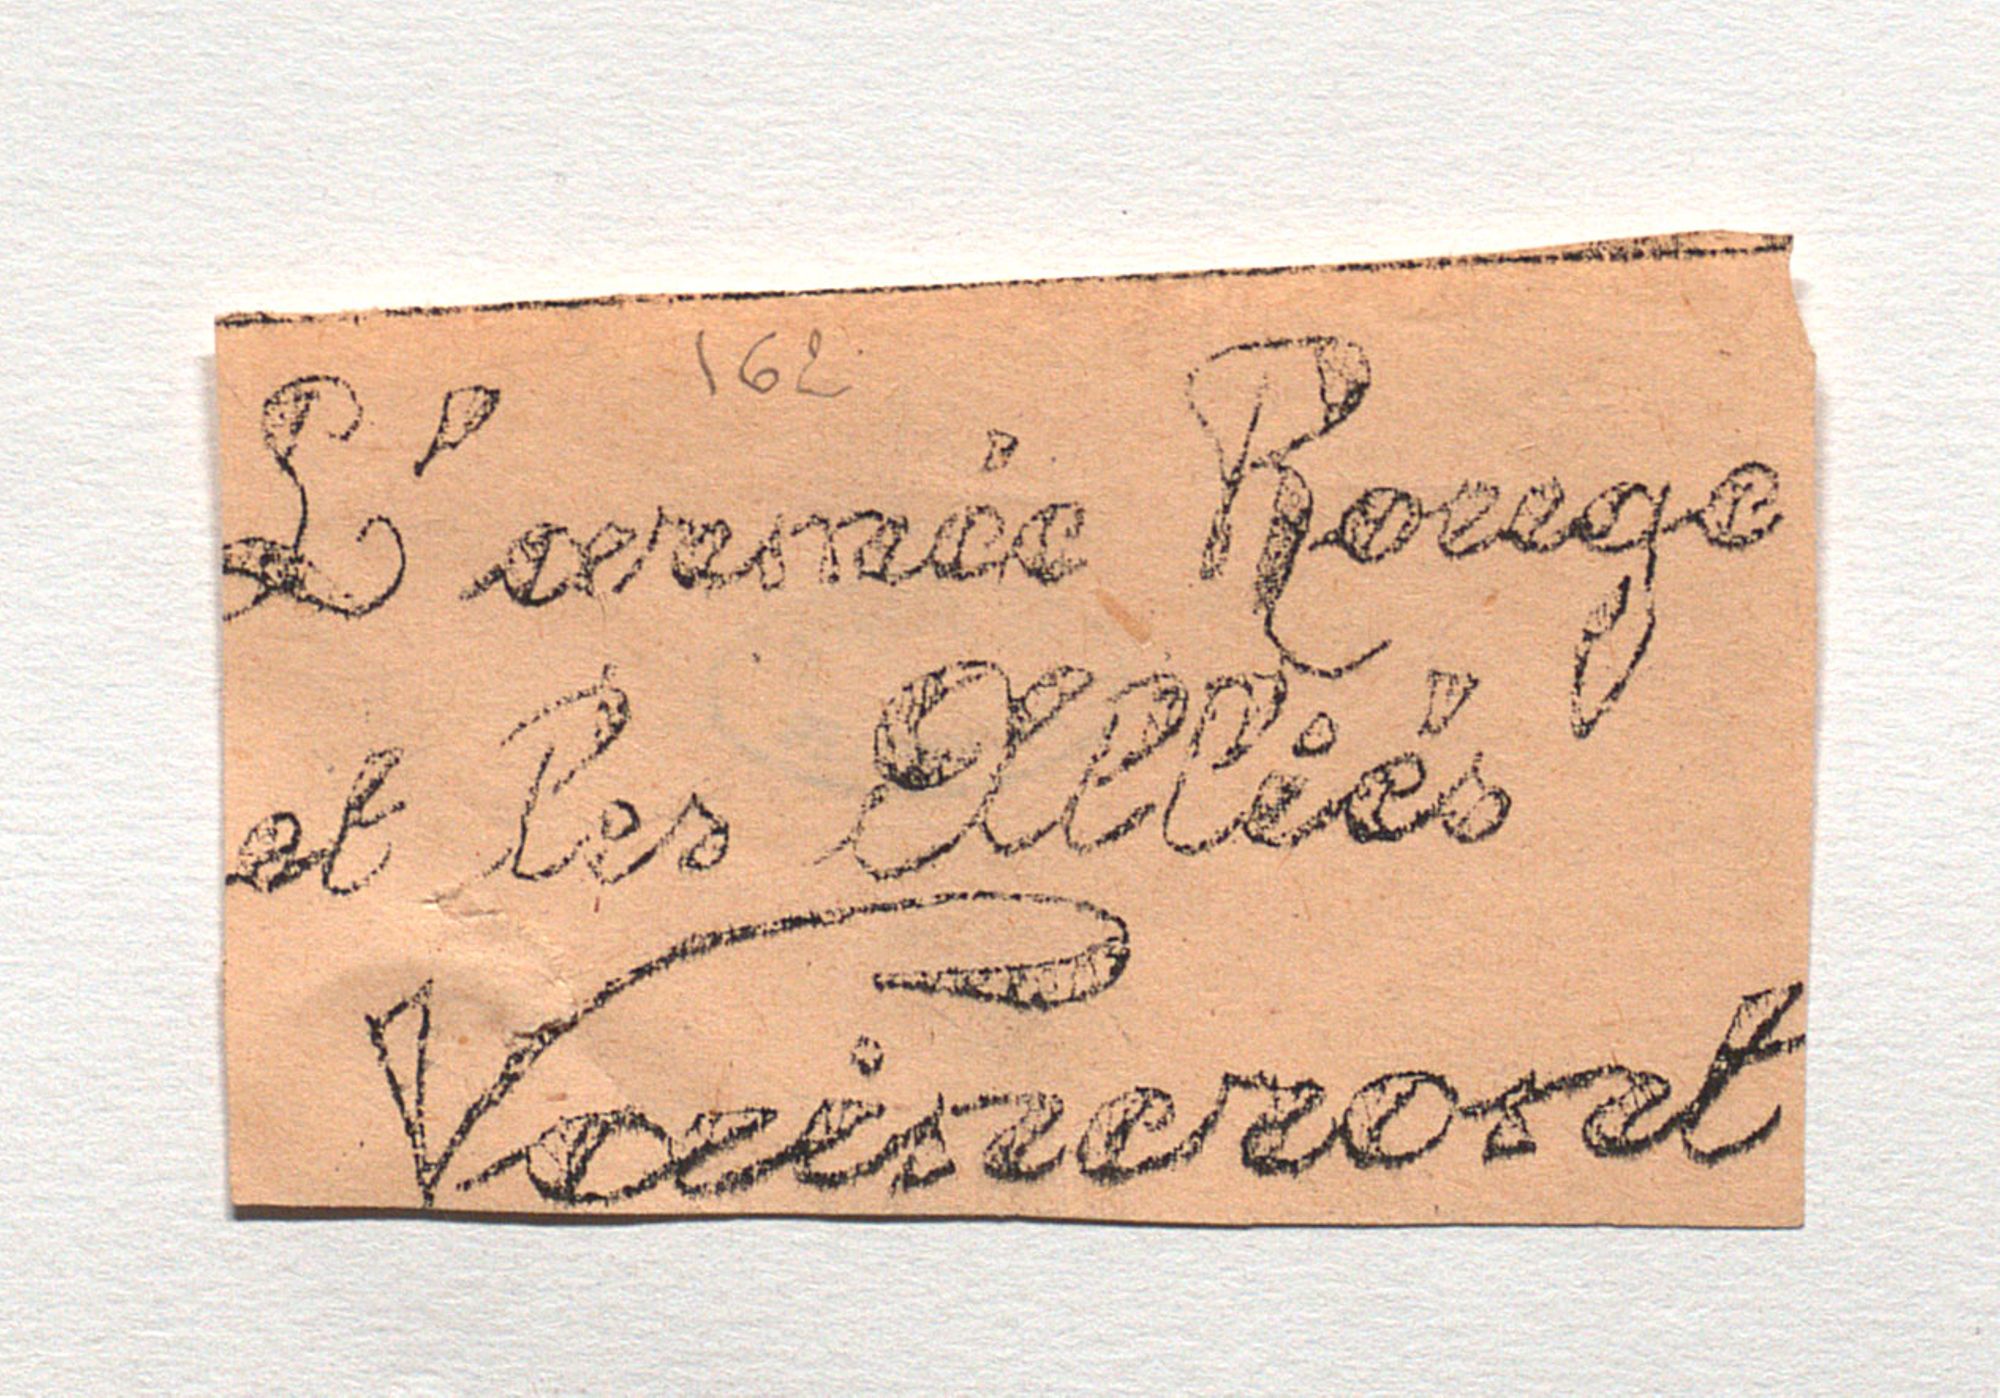 162
L'armée Rouge
et les Alliés
Vaincront